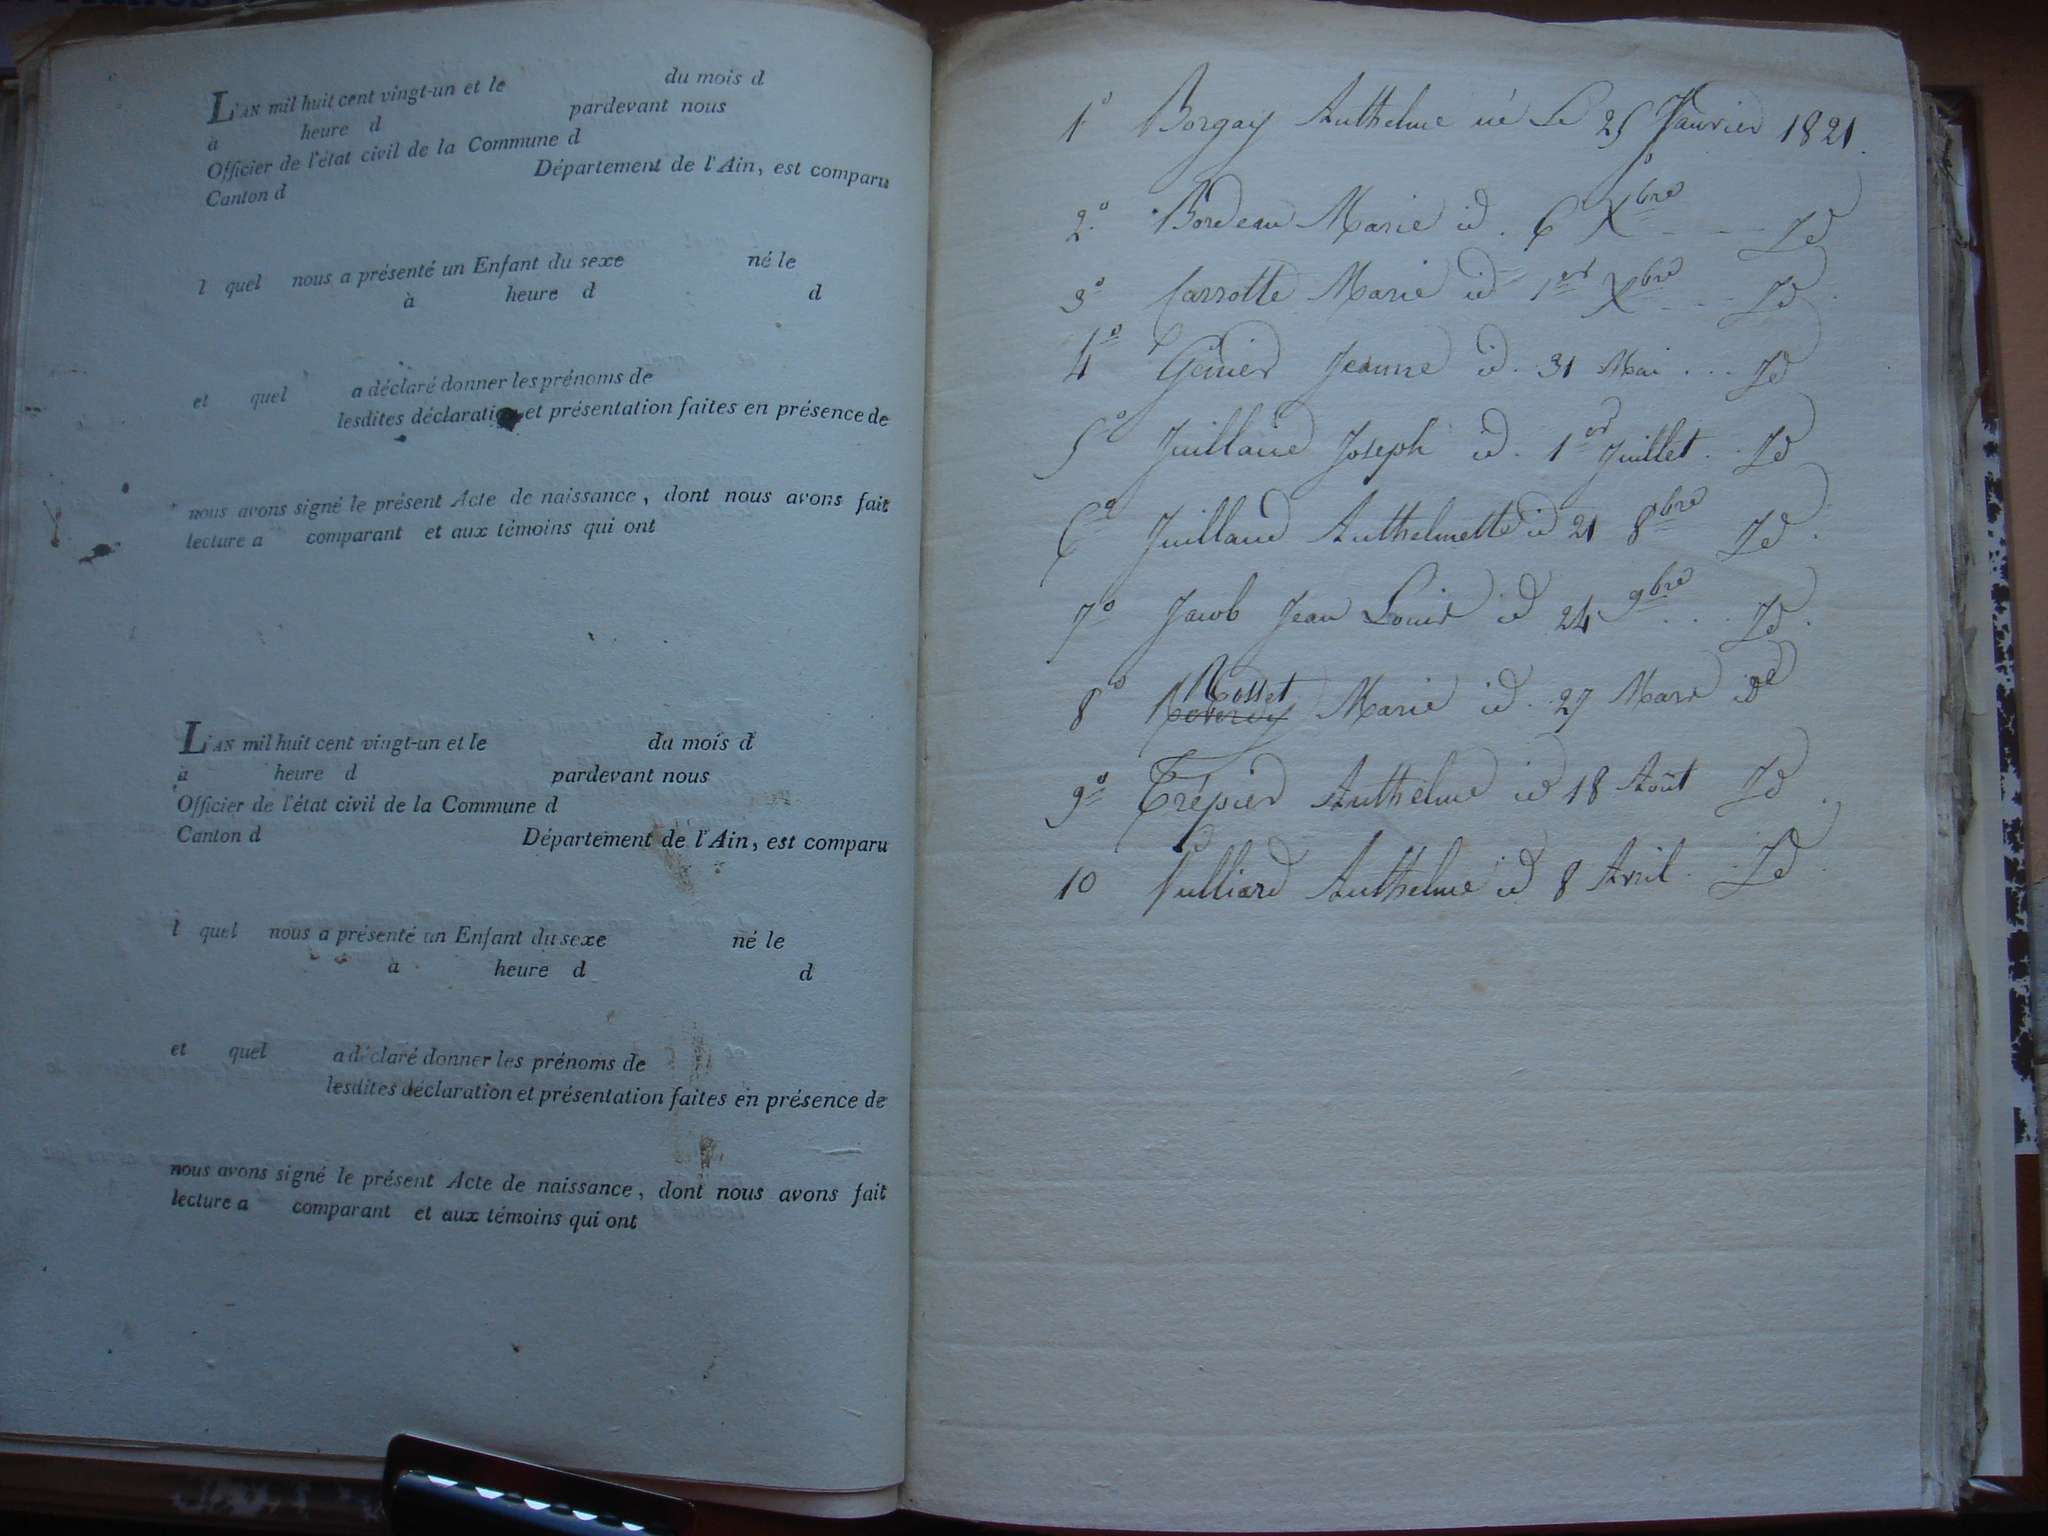 L'AN mil huit cent vingt-un et le du mois d
à heure d pardevant nous
Officier de l'état civil de la Commune d
Canton d Département de l'Ain, est comparu
l quel nous a présenté un Enfant du sexe né le
à heure d d
et quel a déclaré donner les prénoms de
lesdites déclaration et présentation faites en présence de
nous avons signé le présent Acte de naissance, dont nous avons fait
lecture a comparant et aux témoins qui ont
L'AN mil huit cent vingt-un et le du mois d
à heure d pardevant nous
Officier de l'état civil de la Commune d
Canton d Département de l'Ain, est comparu
l quel nous a présenté un Enfant du sexe né le
à heure d d
et quel a déclaré donner les prénoms de
lesdites déclaration et présentation faites en présence de
nous avons signé le présent Acte de naissance, dont nous avons fait
lecture a comparant et aux témoins qui ont
1° Borgay Anthelme né Le 25 Janvier 1821.
2° Bordeau Marie id. 6 Xbre - - - Id
3° Carrotte Marie id 1er Xbre - - Id.
4° Génier Jeanne id. 31 Mai ... Id
5° Juilland Joseph id. 1er Juillet.. Id
6° Juilland Anthelmette id 21 8bre Id.
7° Jacob Jean Louis id 24 9bre ... Id.
8° Rosset Marie id. 27 Mars id
9° Trépier Anthelme id 18 Août Id.
10 Vulliard Anthelme id 8 Avril. Id.